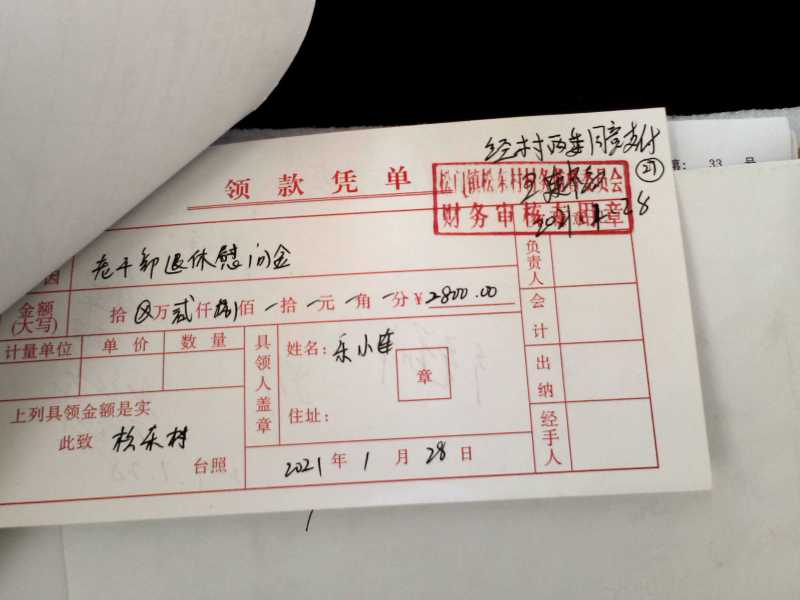 经村两委同意支付
第: 33 号
领款凭单
27
松门镇松东村财务监督委员会
财务审核专用章
因 老干部退休慰问金
负责人
金额(大写) 拾 万 贰仟捌佰 拾 元 角 分 ¥2800.00
会计
计量单位 单价 数量
具领人盖章
姓名: 乐小连
章
出纳
住址:
上列具领金额是实
此致 松东村
台照
经手人
2021年1月28日